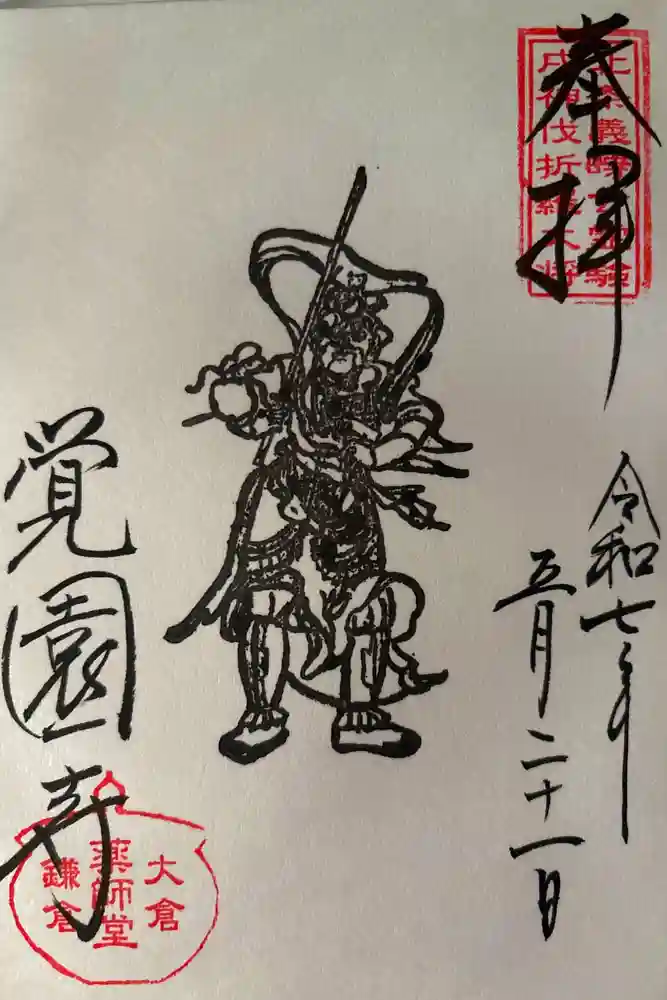 奉拝
北条義時公霊験
戌神伐折羅大将
令和七年
五月二十一日
覚園寺
大倉
薬師堂
鎌倉